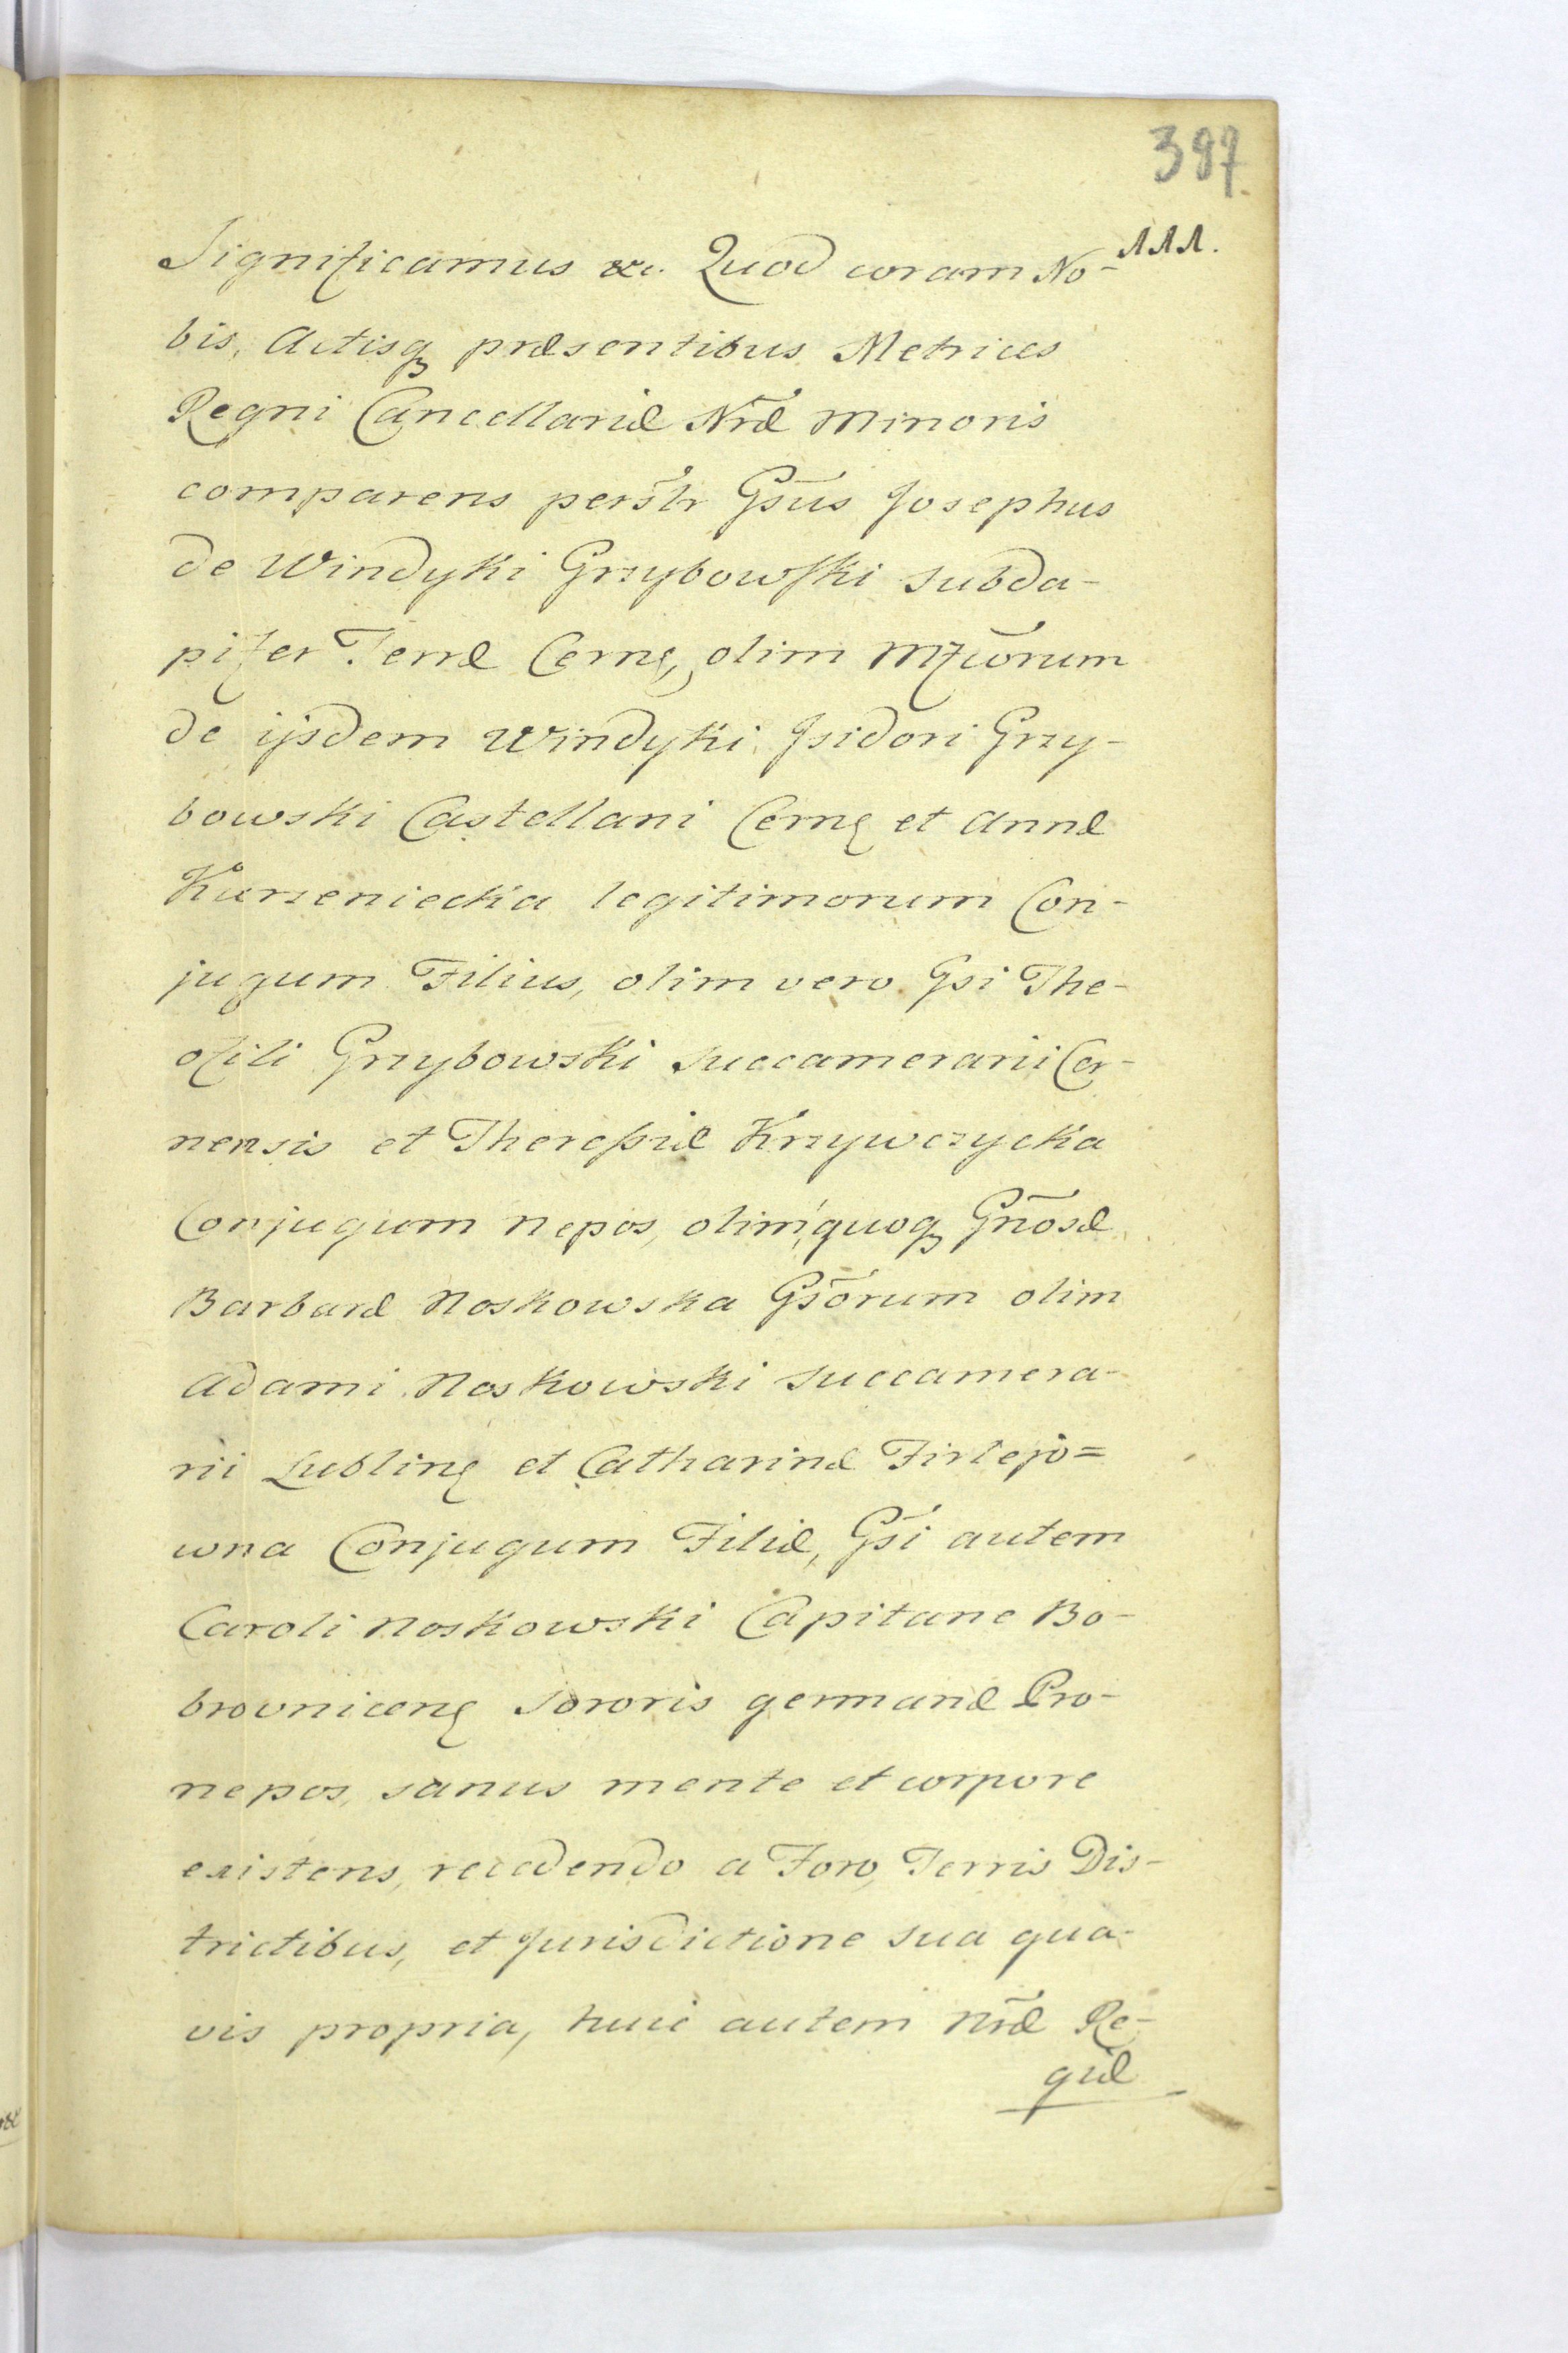 397.
111.
Significamus &c. Quod coram No-
bis, Actisq, præsentibus Metrices
Regni Cancellariæ Nræ Minoris
comparens persĩr Gsũs Josephus
de Windyki Grzybowski Subda-
pifer Terræ Cernę, olim Mfcõrum
de ijsdem Windyki Jsidori Grzy-
bowski Castellani Cernę et Annæ
Kurzeniecka legitimorum Con-
jugum Filius, olim vero Gsi The-
ofili Grzybowski Succamerarii Cer-
nensis et Theressiæ Krzywczycka
Conjugum Nepos, olim quoq, Gnõsæ
Barbaræ Noskowska Gsõrum olim
Adami Noskowski Succamera-
rii Lublinę et Catharinæ Firlejo=
wna Conjugum Filiæ, Gsĩ autem
Caroli Noskowski Capitane Bo-
brovnicenę Sororis germanæ Pro-
nepos, sanus mente et corpore
existens, recedendo a Foro, Terris Dis-
trictibus, et Jurisdictione sua qua-
vis propria, huic autem Nræ Re-
giæ